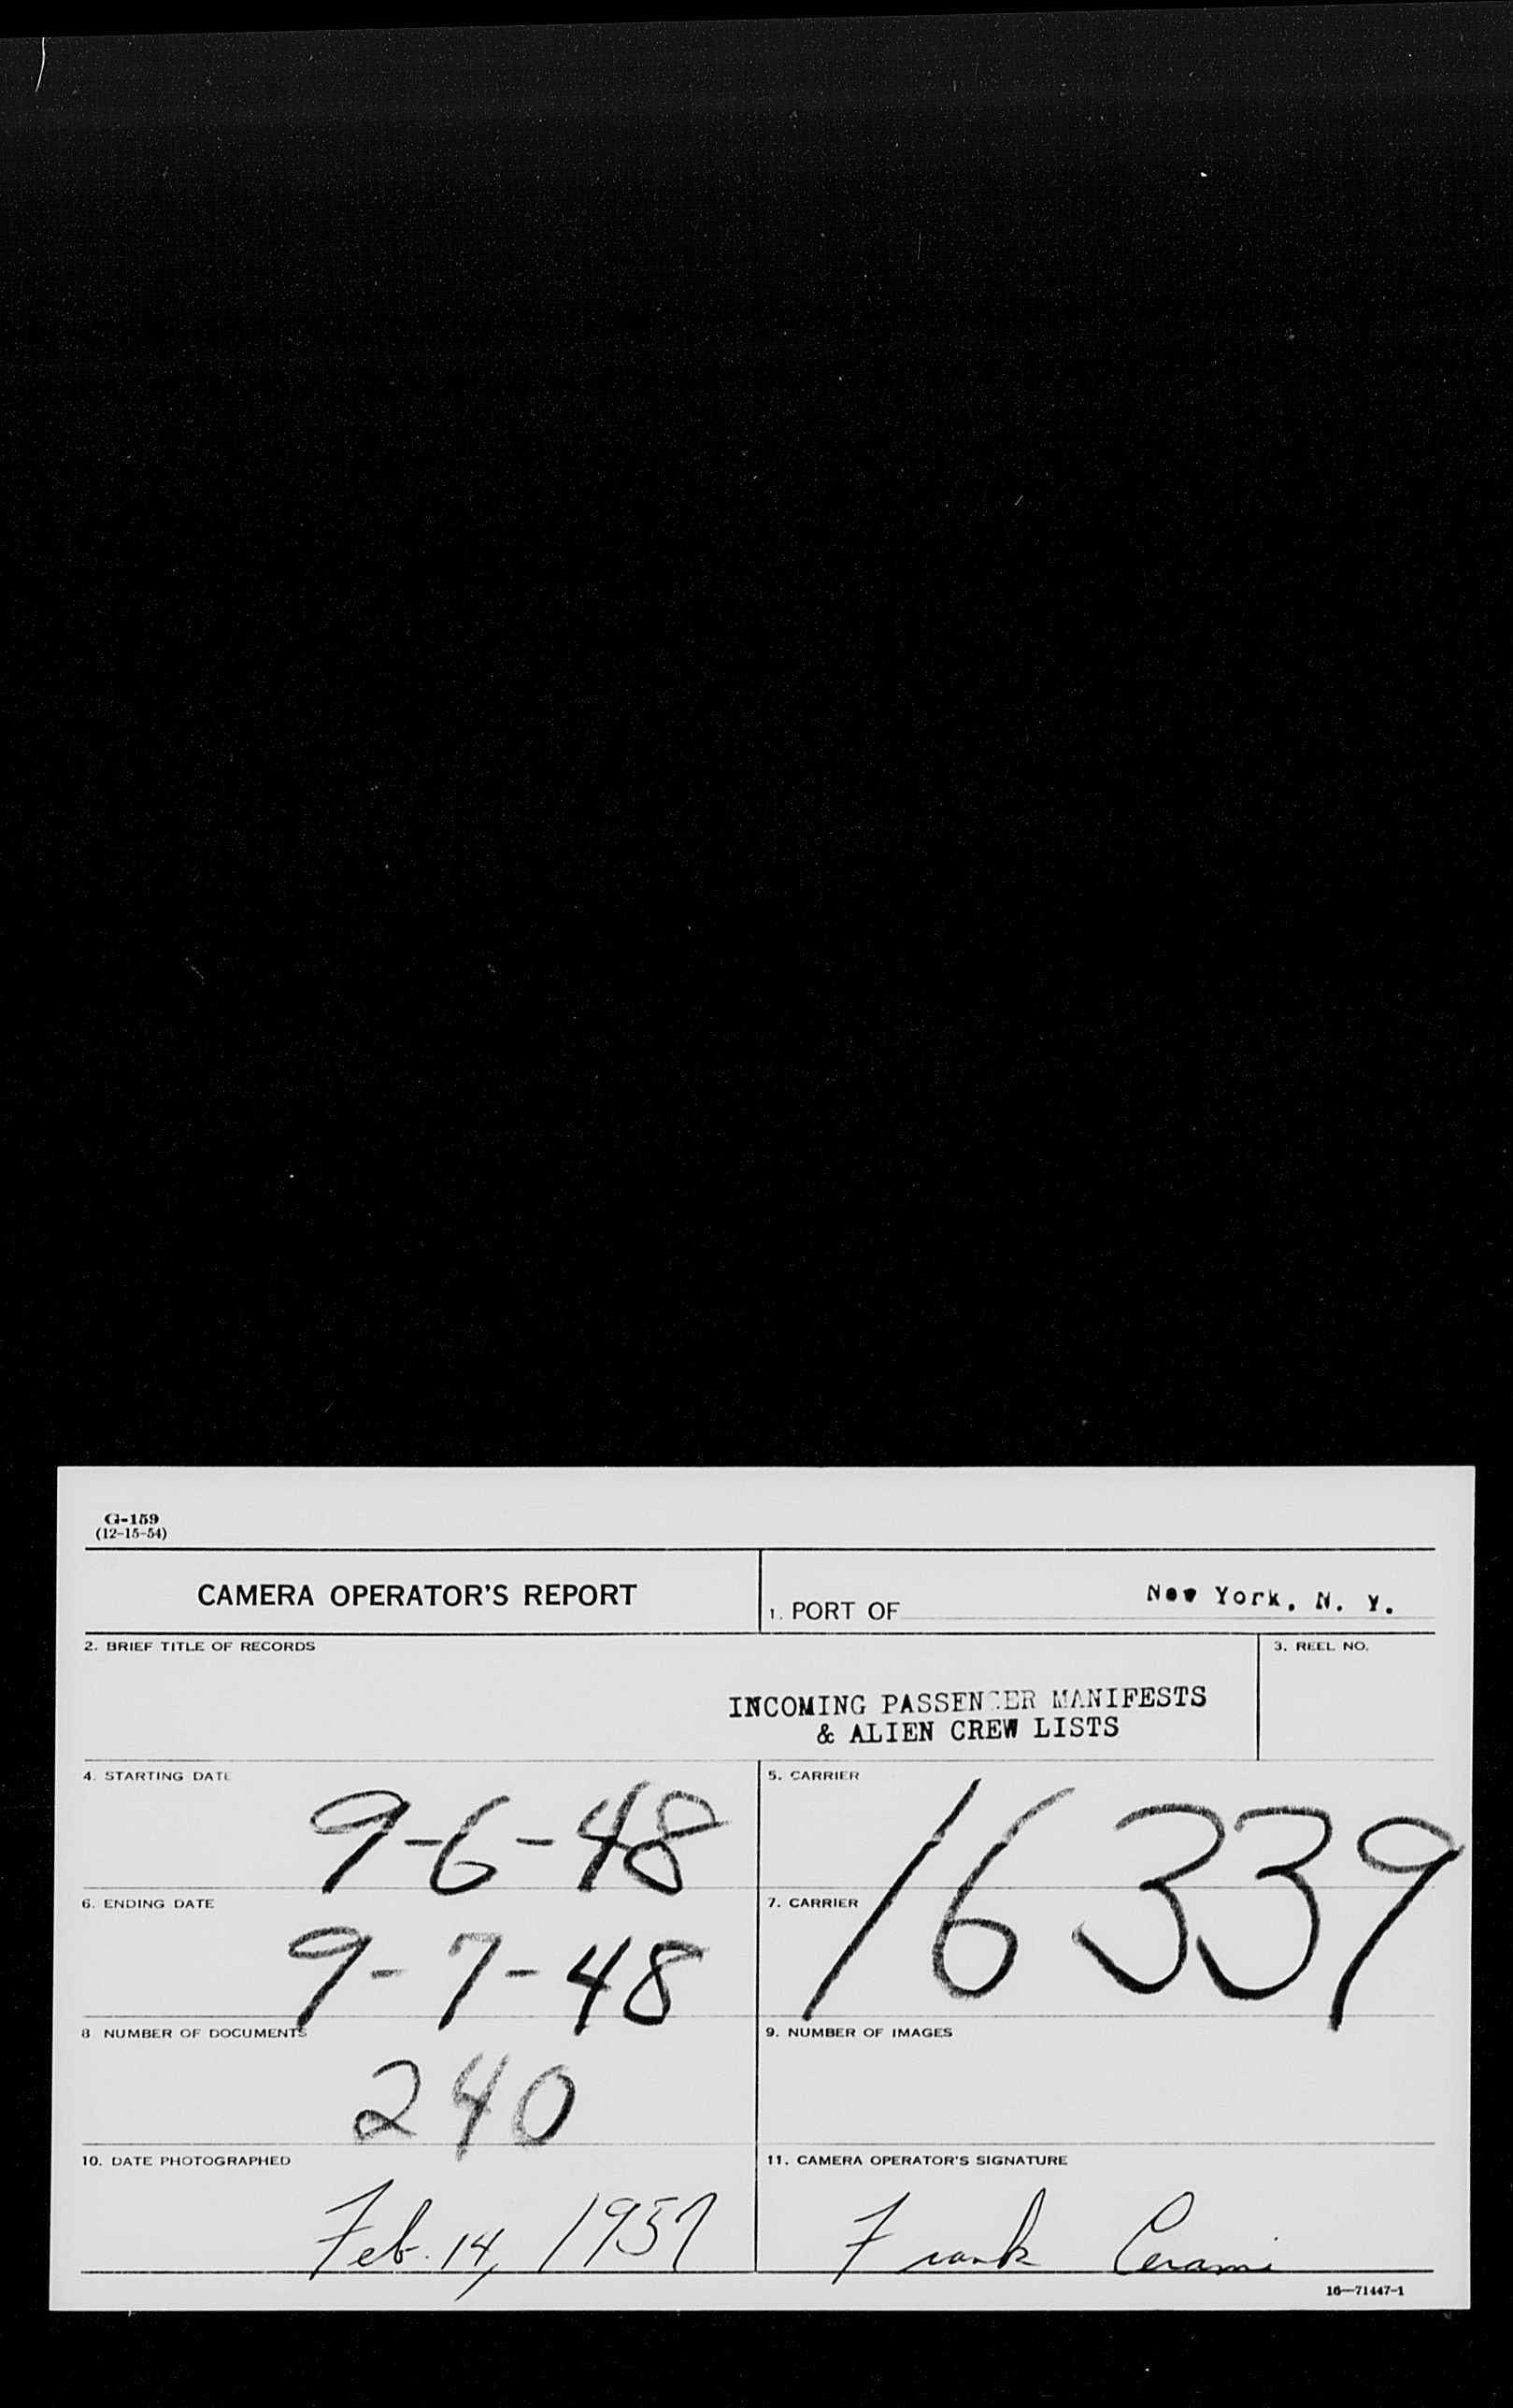 G-159
(12-15-54)
CAMERA OPERATOR'S REPORT
1. PORT OF New York, N. Y.
2. BRIEF TITLE OF RECORDS
3. REEL NO.
INCOMING PASSENGER MANIFESTS
& ALIEN CREW LISTS
4. STARTING DATE
9-6-48
5. CARRIER
16339
6. ENDING DATE
9-7-48
7. CARRIER
8. NUMBER OF DOCUMENTS
240
9. NUMBER OF IMAGES
10. DATE PHOTOGRAPHED
Feb. 14, 1957
11. CAMERA OPERATOR'S SIGNATURE
Frank Cerami
16—71447-1